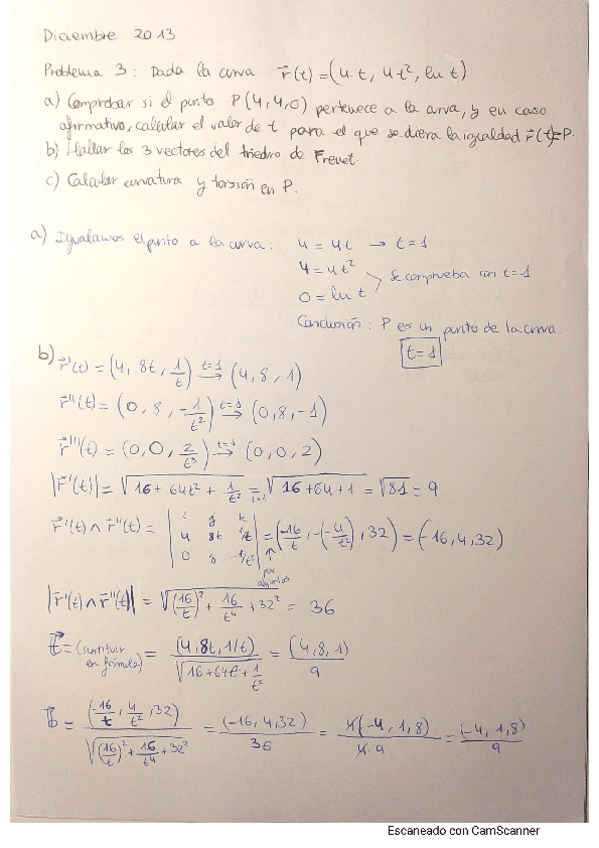 Diciembre 2013
Problema 3: Dada la curva r⃗(t)=(4·t, 4t², ln t)
a) Comprobar si el punto P(4,4,0) pertenece a la curva, y en caso
afirmativo, calcular el valor de t para el que se diera la igualdad r⃗(t)=P.
b) Hallar los 3 vectores del triedro de Frenet.
c) Calcular curvatura y torsión en P.
a) Igualamos el punto a la curva: 4 = 4t → t=1
4 = 4t²
0 = ln t > Se comprueba con t=1
Conclusión: P es un punto de la curva.
t=1
b) r⃗'(t) = (4, 8t, 1/t) t=1→ (4, 8, 1)
r⃗''(t) = (0, 8, -1/t²) t=1→ (0, 8, -1)
r⃗'''(t) = (0, 0, 2/t³) t=1→ (0, 0, 2)
|r⃗'(t)| = √(16+64t²+1/t²) =t=1 √(16+64+1) = √81 = 9
r⃗'(t) ∧ r⃗''(t) = | i j k ; 4 8t 1/t ; 0 8 -1/t² | = (-16/t, -(-4/t²), 32) = (-16, 4, 32)
↑ por adjuntos
|r⃗'(t) ∧ r⃗''(t)| = √((16/t)² + 16/t⁴ + 32²) = 36
t⃗ = (sustituir en fórmula) = (4, 8t, 1/t) / √(16+64t+1/t²) = (4, 8, 1) / 9
b⃗ = (-16/t, 4/t², 32) / √((16/t)² + 16/t⁴ + 32²) = (-16, 4, 32) / 36 = 4(-4, 1, 8) / 4·9 = (-4, 1, 8) / 9
Escaneado con CamScanner